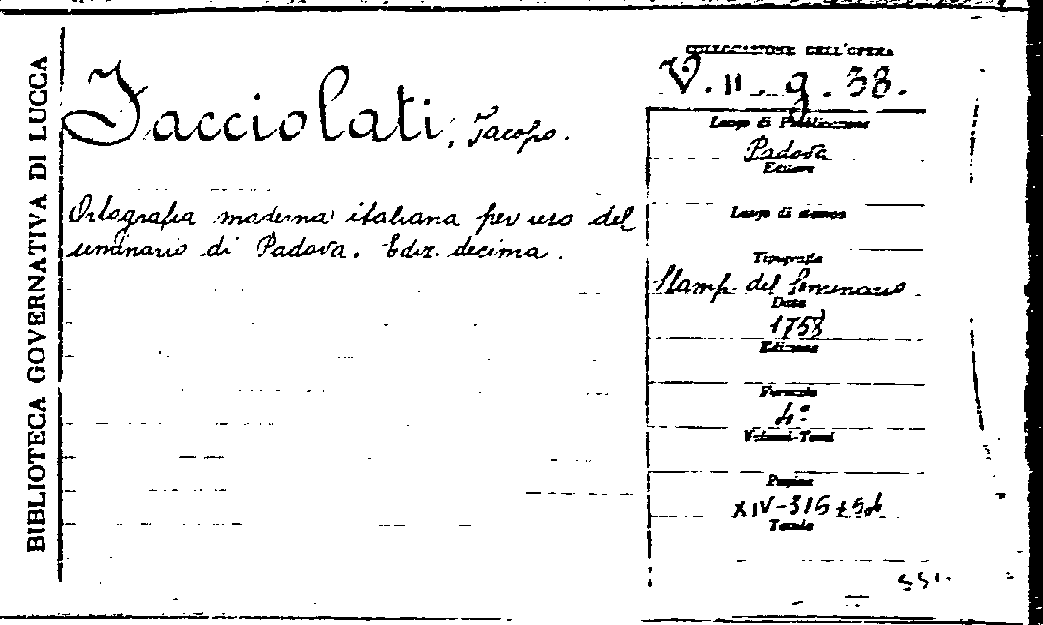 BIBLIOTECA GOVERNATIVA DI LUCCA
Facciolati, Jacopo.
Ortografia moderna italiana per uso del
seminario di Padova. Ediz. decima.
COLLOCAZIONE DELL'OPERA
V. II. g. 38.
Luogo di Pubblicazione
Padova
Editore
Luogo di stampa
Tipografia
Stamp. del Seminario
Data
1758
Edizione
Formato
4º
Volumi-Tomi
Pagine
XIV-315
Tavole